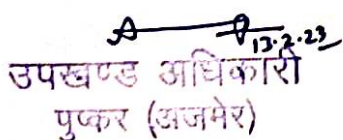 13.2.23
उपखण्ड अधिकारी
पुष्कर (अजमेर)